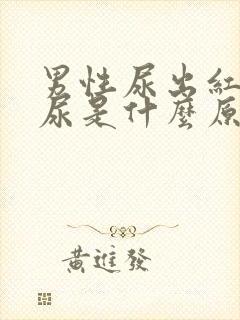 男性尿出紅
尿是什麼原
黃進發